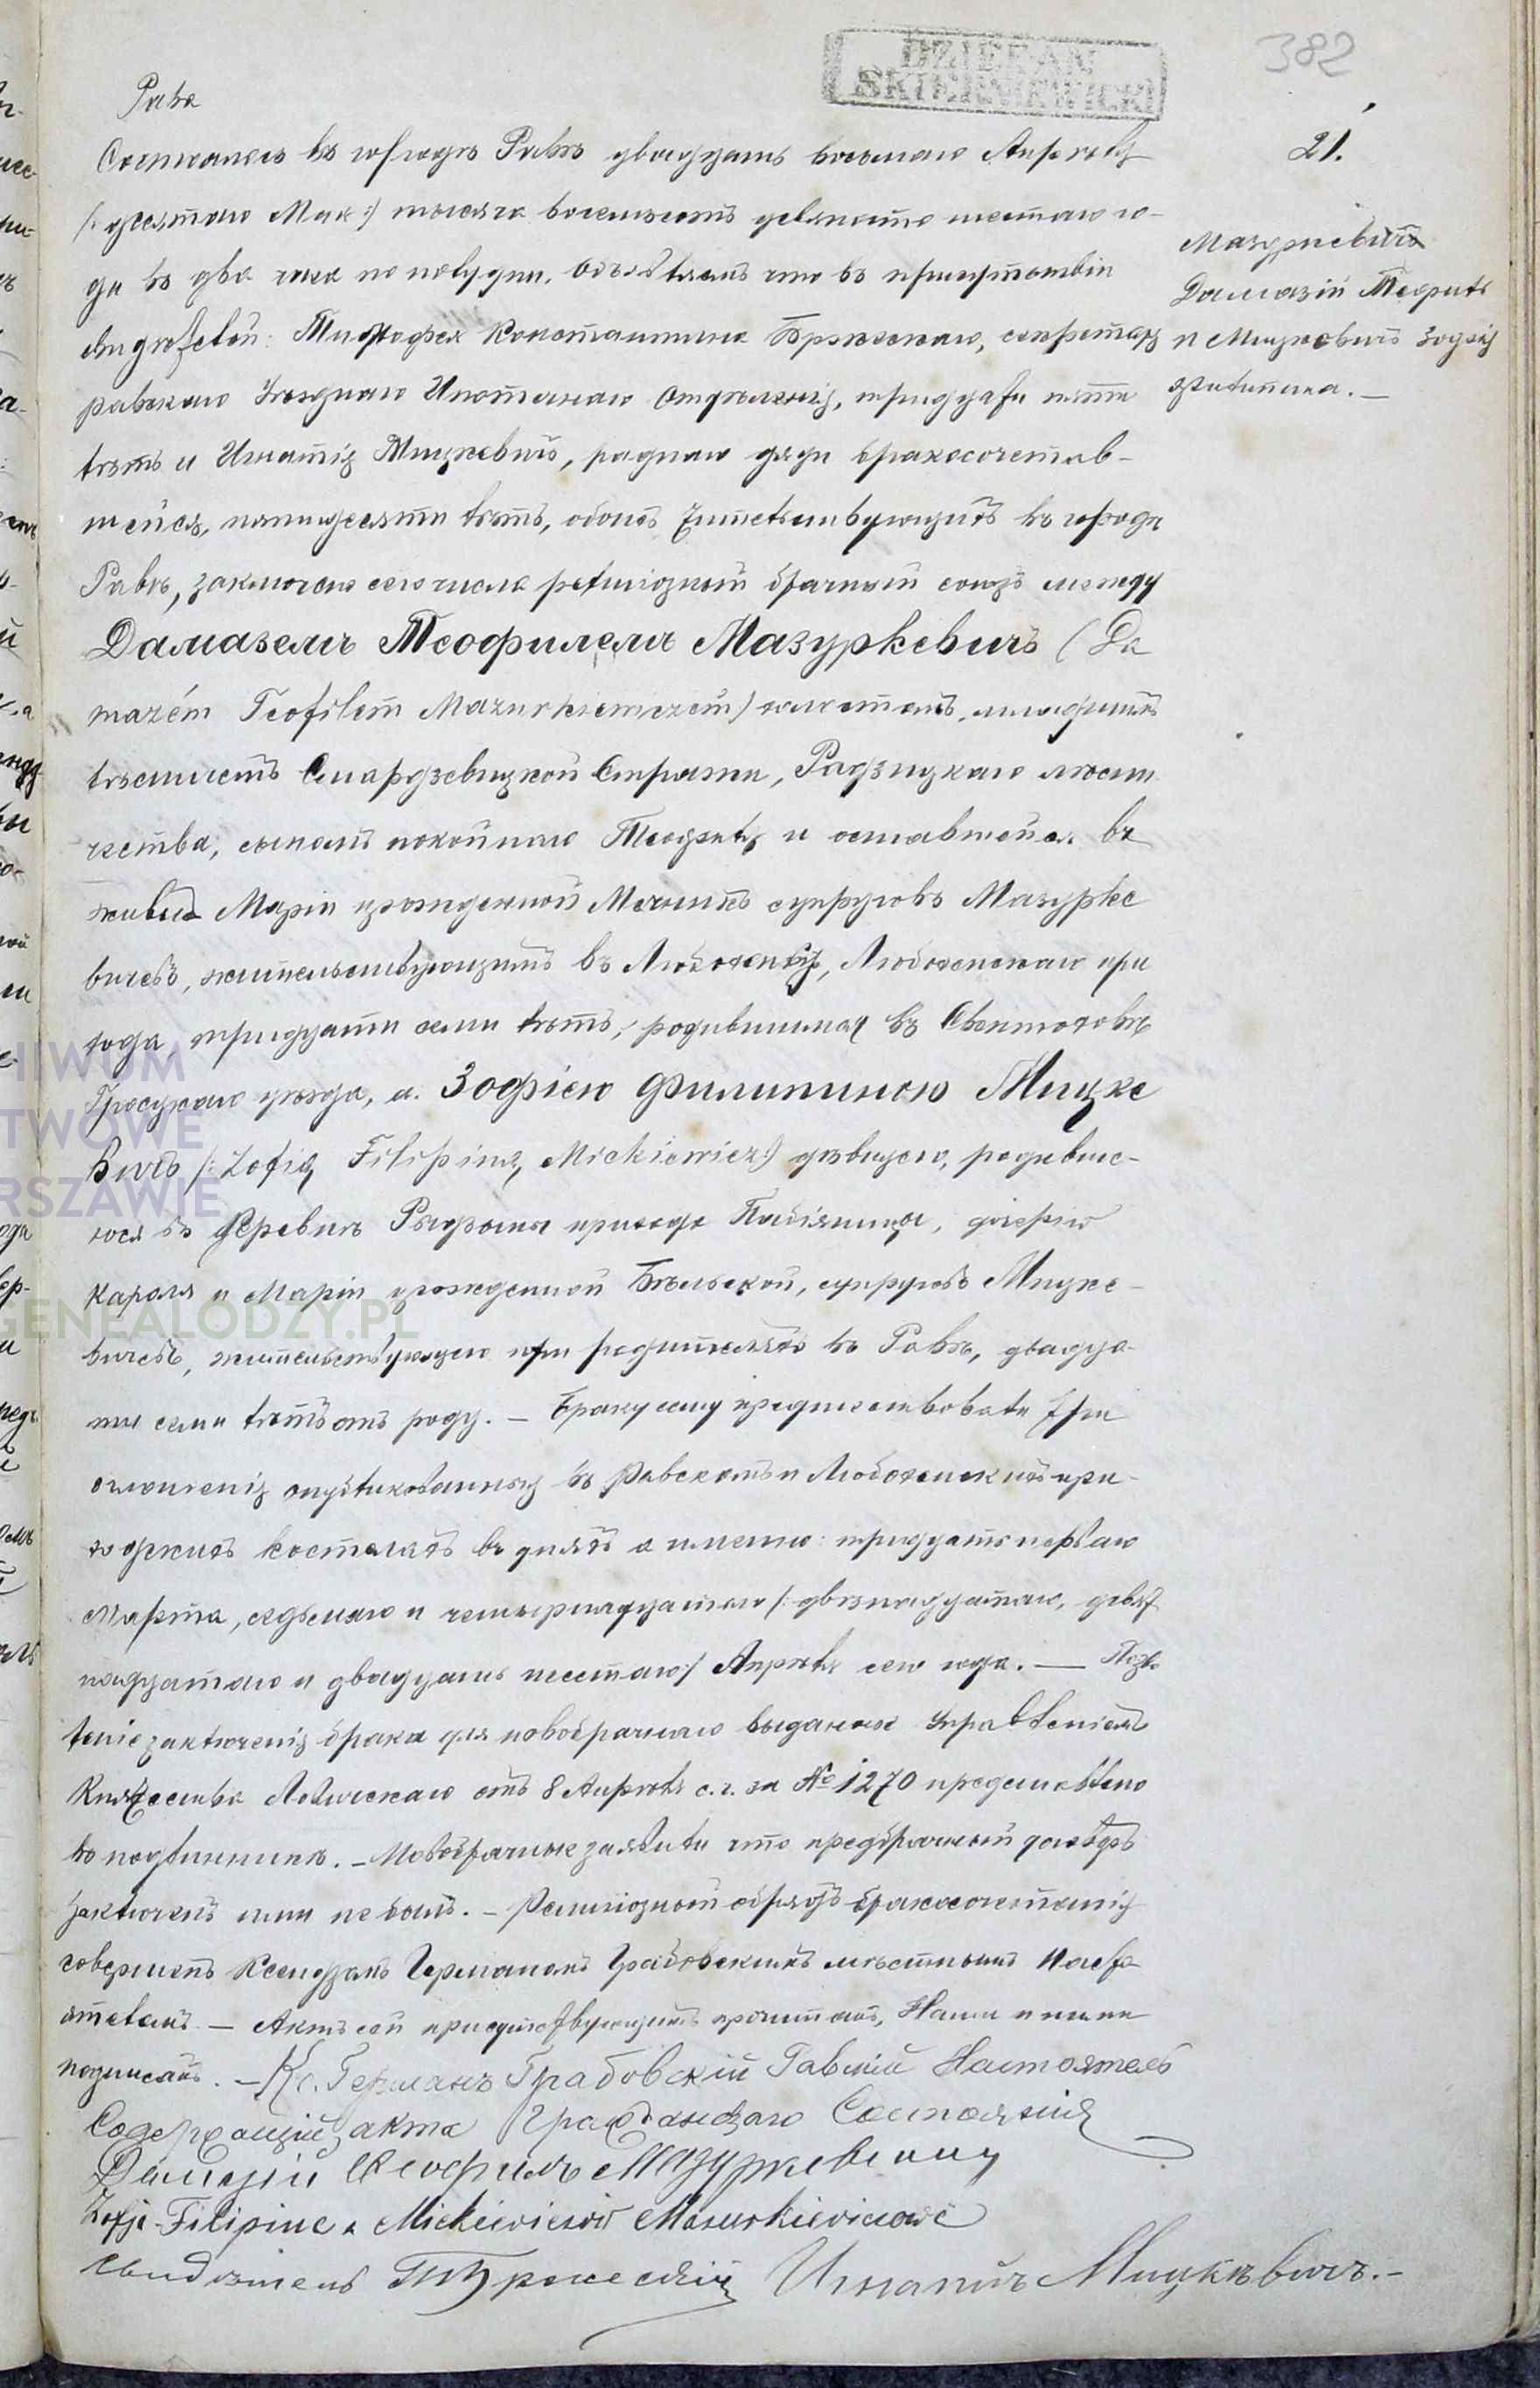 382
DZIEKAN
SKIERNIEWICKI
Рава
21.
Мазуркевичъ
Дамазій Теофилъ
и Мицкевичъ Зофія
Филипина. —
Состоялось въ городѣ Равѣ двадцать восьмаго Апрѣля
/: десятаго Мая :/ тысяча восемьсотъ девяносто шестаго го-
да въ два часа по полудни. Объявляемъ что въ присутствіи
свидѣтелей: Константина Бржескаго, секретаря
равскаго Уѣзднаго отдѣленія, тридцати пяти
лѣтъ и Игнатія Мицкевичъ, роднаго дяди бракосочетав-
шейся, пятидесяти лѣтъ, обоихъ жительствующихъ въ городѣ
Равѣ, заключенъ сего числа религіозный брачный союзъ между
Дамаземъ Теофилемъ Мазуркевичъ (Da
mazém Teofilem Mazurkiewiczem) холостымъ, младшимъ
лѣсничимъ Смардзевицкой Стражи, Радзицкаго лѣсни
чества, сыномъ покойнаго Теофиля и оставшейся въ
живыхъ Маріи урожденной супруговъ Мазурке
вичей, жительствующимъ въ Любохенку, Любохенскаго при
хода, тридцати семи лѣтъ, родившимся въ
Гроецкаго уѣзда, и Зофіею Филипиною Мицке
вичъ /: Zofią Filipiną Mickiewicz :/ дѣвицею, родившe-
юся въ деревнѣ Рыдзыны прихода Пабіяницы, дочерью
Кароля и Маріи урожденной Бѣльской, супруговъ Мицке-
вичей, жительствующею при родителяхъ въ Равѣ, двадца-
ти семи лѣтъ отъ роду. — Браку сему предшествовали три
оглашенія опубликованныя въ Равскомъ и Любохенскомъ при-
ходскихъ костелахъ въ дняхъ а именно: тридцать перваго
Марта, седьмаго и четырнадцатаго /: двѣнадцатаго, девят
надцатаго и двадцать шестаго :/ Апрѣля сего года. — Позво
леніе заключенія брака для новобрачнаго выданное Управленіемъ
Княжества Ловичскаго отъ 8 Апрѣля с. г. за № 1270 представлено
въ подлинникѣ. — Новобрачные заявили что предбрачный договоръ
заключенъ ими не былъ. — Религіозный обрядъ бракосочетанія
совершенъ Ксендзомъ Германомъ Грабовскимъ мѣстнымъ Настоя
ятелемъ — Актъ сей присутствующимъ прочитанъ, Нами и ими
подписанъ. — Кс. Германъ Грабовскій Равскій Настоятель
Содержащій акта Гражданскаго Состоянія
Дамазій Теофилъ Мазуркевичъ
Zofja-Filipina z Mickiewiczów Mazurkiewiczowa
свидѣтель Бржескій Игнатій Мицкевичъ. —